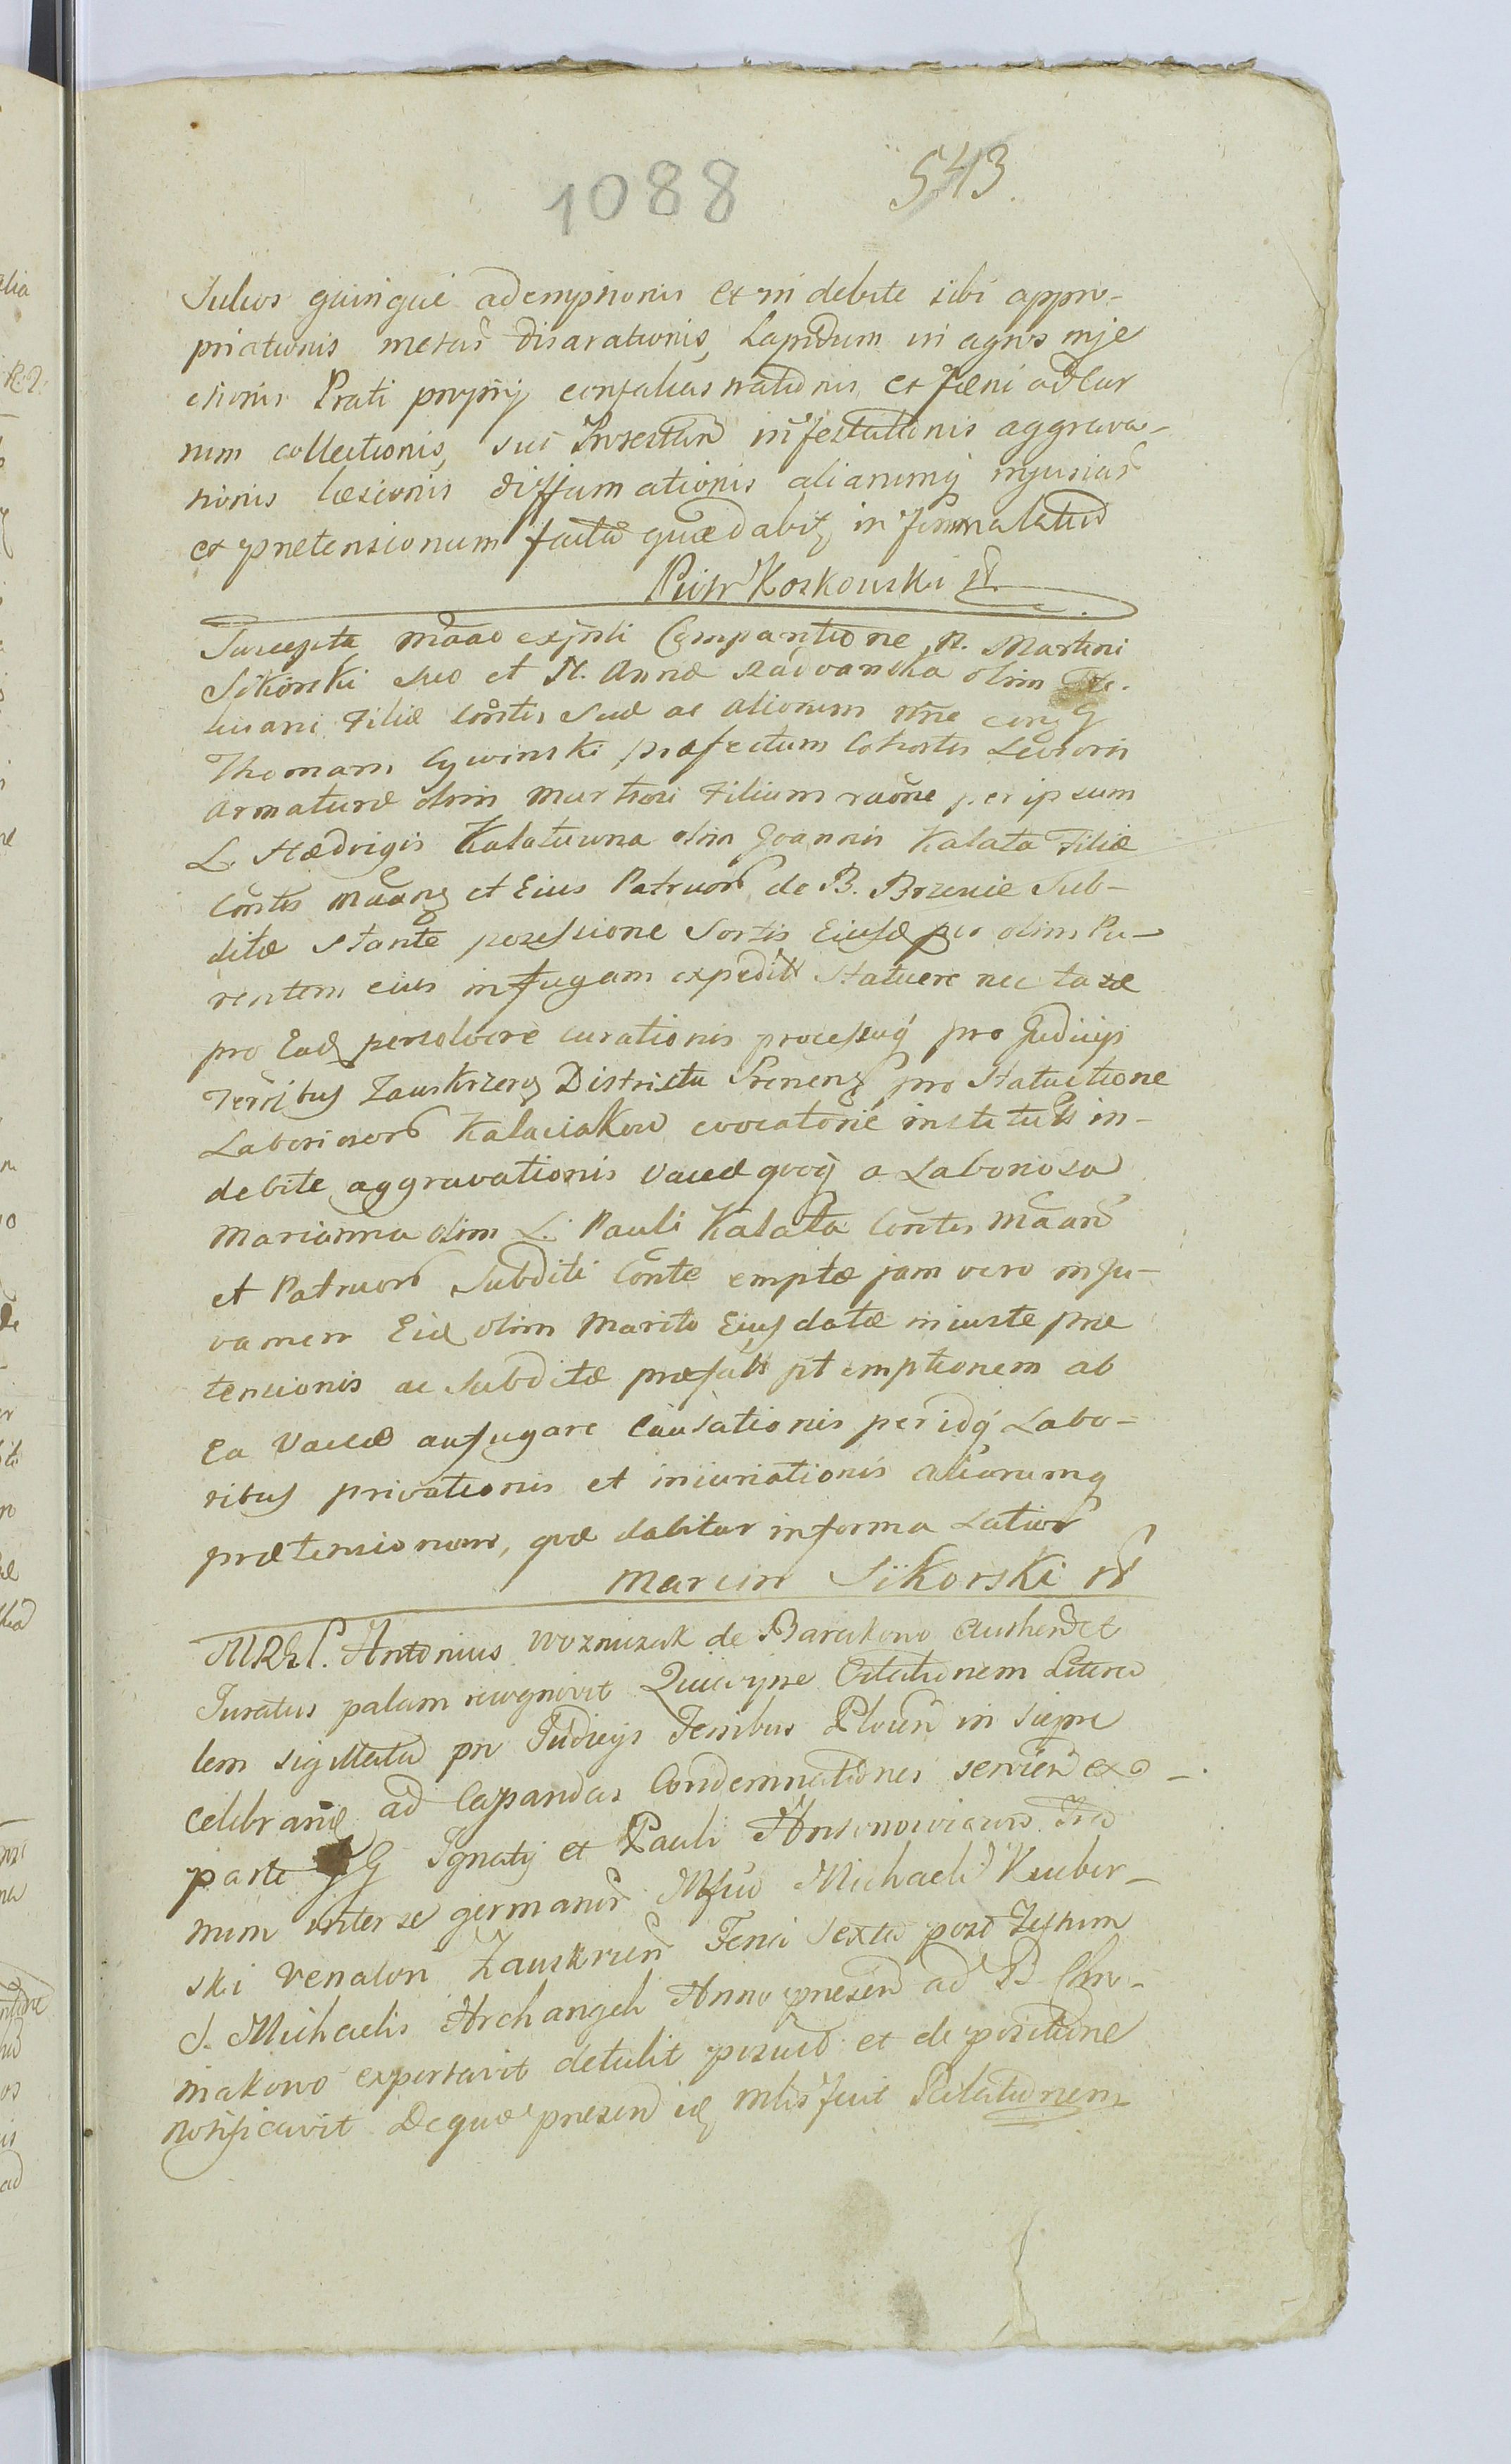 1088 543.
Sulcos quinque ademptionis et in debite sibi appro-
priationis metar disarationis, Lapidum in agros inje
ctionis Prati proprij confalcastrationis, et Fæni ad Cur
rum collectionis, sui Invectar infestationis aggrava-
tionis læsionis diffamationis aliarumq injuriar
et pretensionum facta quæ dabit, in forma latiod
Piotr Koskowski
Suscepta maao exjnsti Comparitione N. Martini
Sikorski suo et N. Anna Radvanska olim
Filiæ contis suæ ac aliorum nne cong
Thomam Cywinski præfectum Cohortis Levioris
Armaturæ olim Martini Filium raône per ipsum
L. Hædvigis Kalatuwna olim Joannis Kalata Filiæ
Contis Maang et Eius Patruor de B. Brzenie Sub-
ditæ stante possessione Sortis Eiusd per olim Pa-
rentem eius in fugam expedit Statuere nec taxæ
pro Ead persolvere curationis processuq pro Judicijs
Terribus Zauskrzeng Districtu Srenens pro Statuitione
Laboriosor Kalaciakow evocatorie institutis in-
debite aggravationis vaccæ qvoq a Laboriosa
Marianna olim L. Pauli Kalata Contis Maan
et Patruor Subditi Conte emptæ jam vero in ju-
vamen Eid olim Marito Eius datæ iniuste præ
tensionis ac Subditæ præfat pt emptionem ab
Ea Vaccæ aufugare Causationis per idq Labo-
ribus privationis et iniuriationis aliarumq
prætensionum, qvæ dabitur in forma Latior
Marcin Sikorski
Antonius Wozniczak de Barakowo
Juratus palam recognovit Quia ipse Citationem Litera
lem sigillata pro Judicijs Terribus Plocen in Sieprc
celebrand ad Cassandas Condemnationes servien ex
parte GG Ignatij et Pauli Antonowiczow Fra
mum inter se germanor Mfco Michaeli Kucbor-
ski Venatori Zauskrzen Feria Sexta post Festum
S. Michaelis Archangeli Anno presen ad B. Chro-
makowo exportavit detulit posuit et de positione
notificavit De qua presen id mlis fecit Relationem